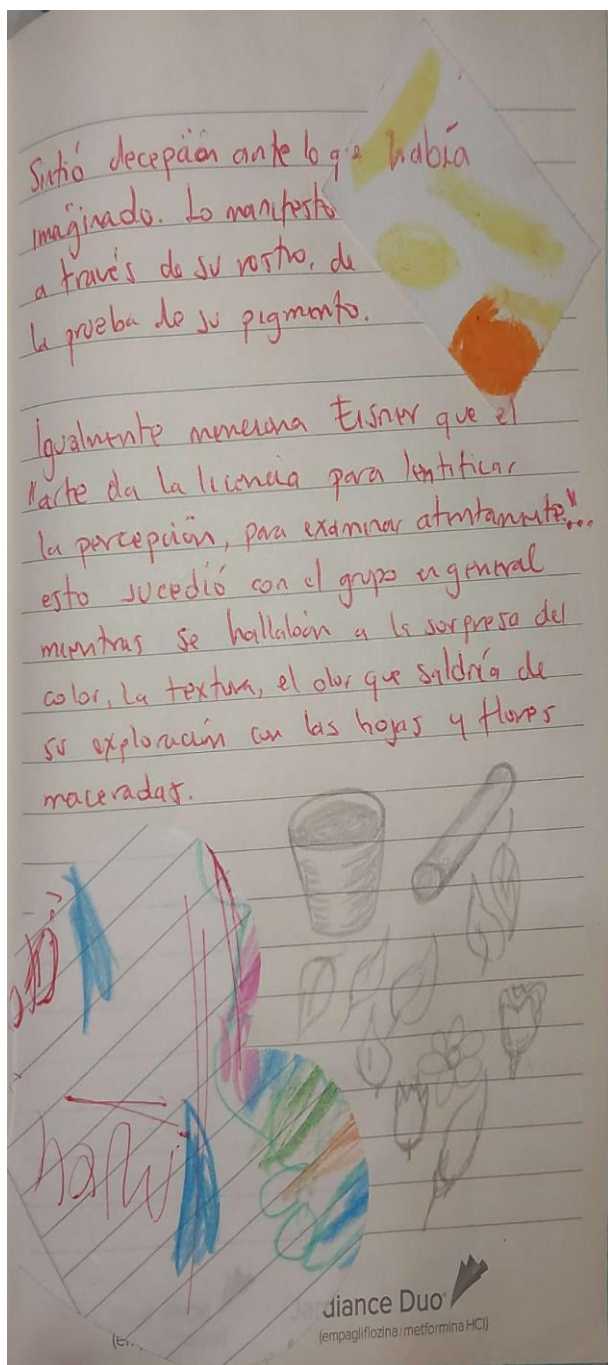 Sintió decepción ante lo que había
imaginado. Lo manifestó
a través de su rostro, de
la prueba de su pigmento.
Igualmente menciona Eisner que el
"arte da la licencia para lentificar
la percepción, para examinar atentamente"...
esto sucedió con el grupo en general
mientras se hallaban a la sorpresa del
color, la textura, el olor que saldría de
su exploración con las hojas y flores
maceradas.
diance Duo
(empagliflozina/metformina HCl)